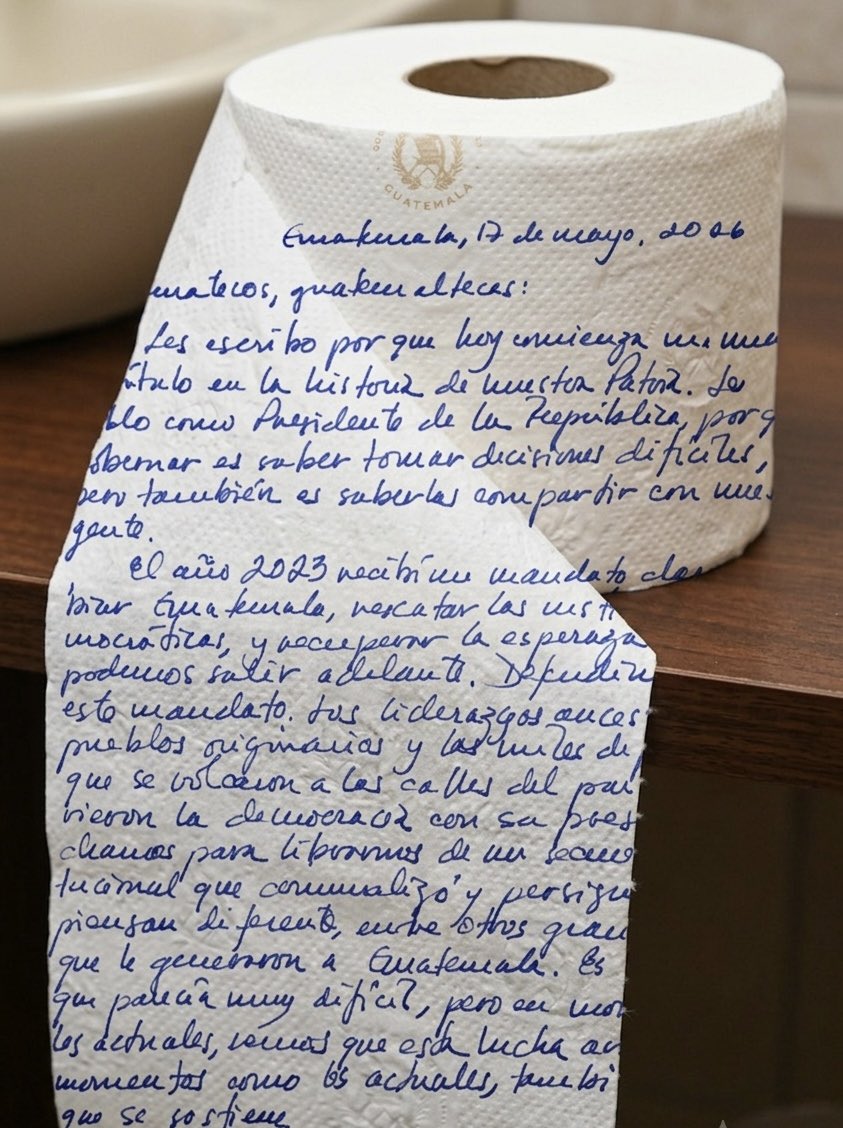 GUATEMALA
Guatemala, 17 de mayo, 2026
matecos, guatemaltecas:
Les escribo por que hoy comienza un nue
ítulo en la historia de nuestra Patria. Les
blo como Presidente de la República, porq
obernar es saber tomar decisiones difíciles,
pero también es saberlas compartir con nue
gente.
El año 2023 recibí un mandato cla
biar Guatemala, rescatar las insti
mocráticas, y recuperar la esperaza
podemos salir adelante. Defendim
este mandato. Los liderazgos ances
pueblos originarios y los miles de
que se volcaron a las calles del paí
vieron la democracia con su pres
chamos para librarnos de un secue
tucional que criminalizó y persigu
piensan diferente, entre otros gran
que le generaron a Guatemala. Es
que parecía muy difícil, pero en mom
los actuales, vemos que esta lucha
momentos como los actuales, tambi
que se sostiene